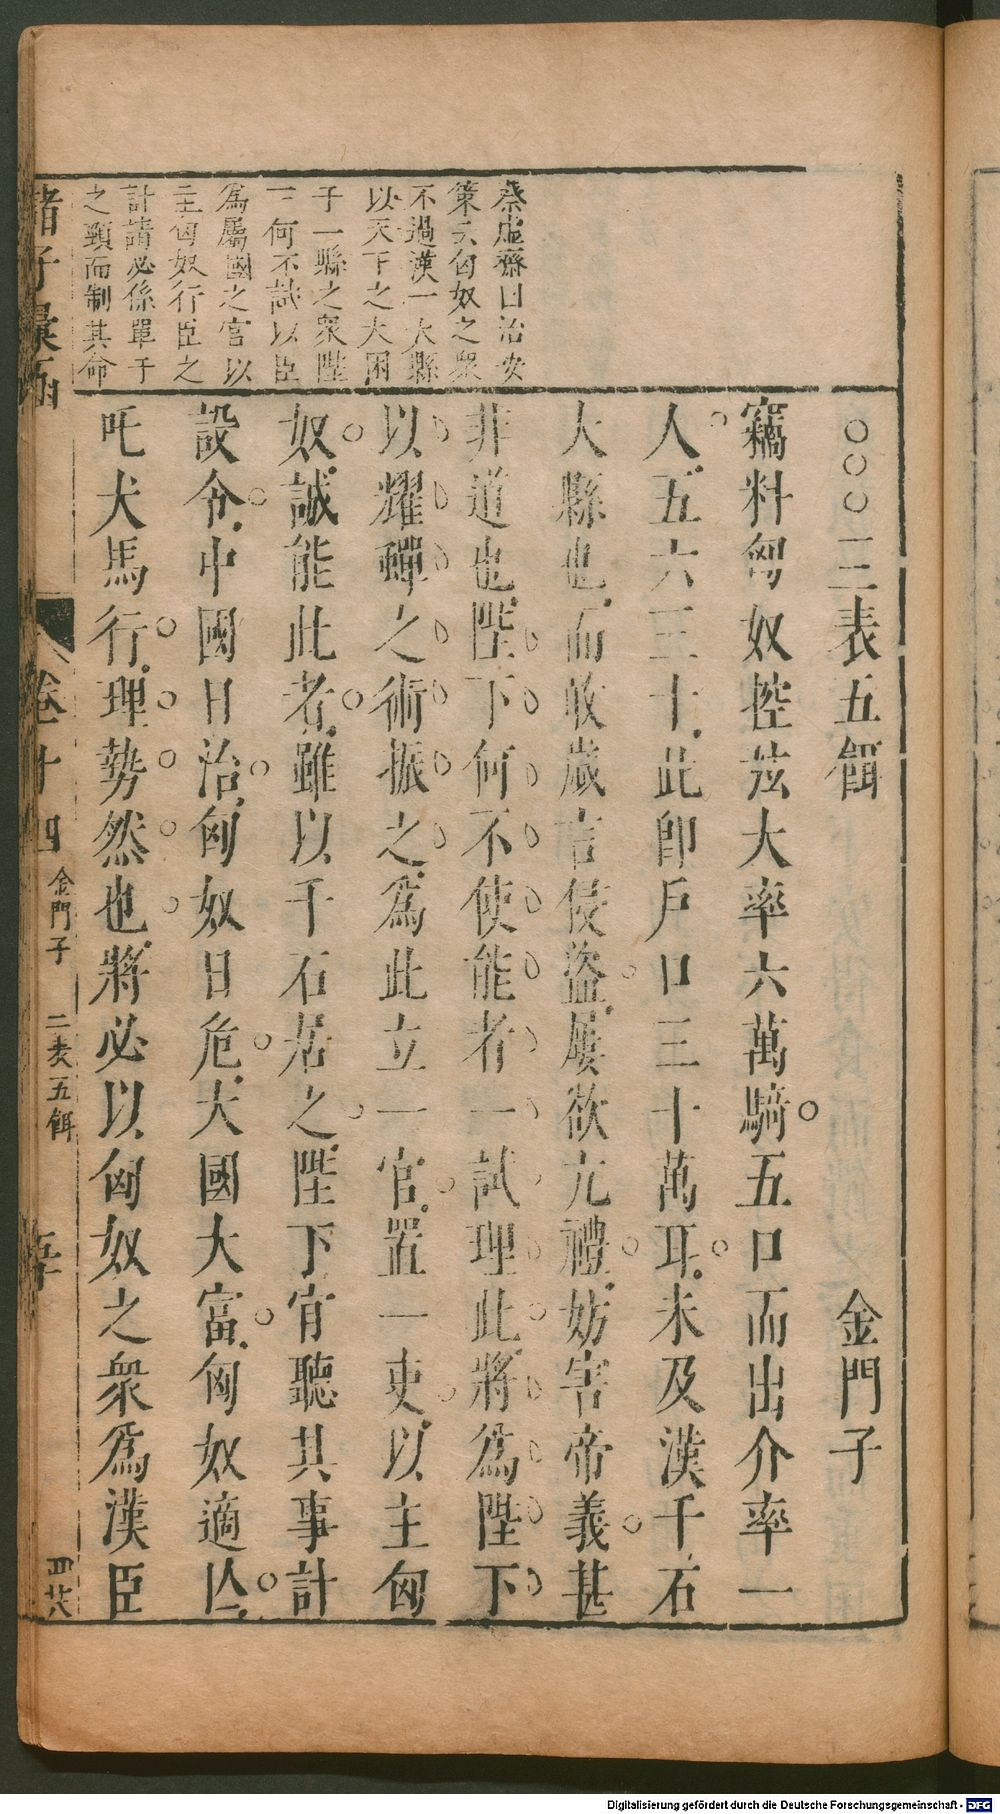 三表五餌 金門子
竊料匈奴控弦大率六萬騎五口而出介率一
人五六三十此即戶口三十萬耳未及漢千石
大縣也而敢歲言侵盜屢欲亢禮妨害帝義甚
非道也陛下何不使能者一試理此將爲陛下
以耀蟬之術振之爲此立一官置一吏以主匈
奴誠能此者雖以千石居之陛下肎聽其事計
設令中國日治匈奴日危大國大富匈奴適亾
吒犬馬行理勢然也將必以匈奴之衆爲漢臣
蔡虛齋曰治安
策云匈奴之衆
不過漢一大縣
以天下之大困
于一縣之衆陛
下何不試以臣
爲屬國之官以
主匈奴行臣之
計請必係單于
之頸而制其命
諸子彙函
卷十四 金門子 三表五餌
Digitalisierung gefördert durch die Deutsche Forschungsgemeinschaft - DFG